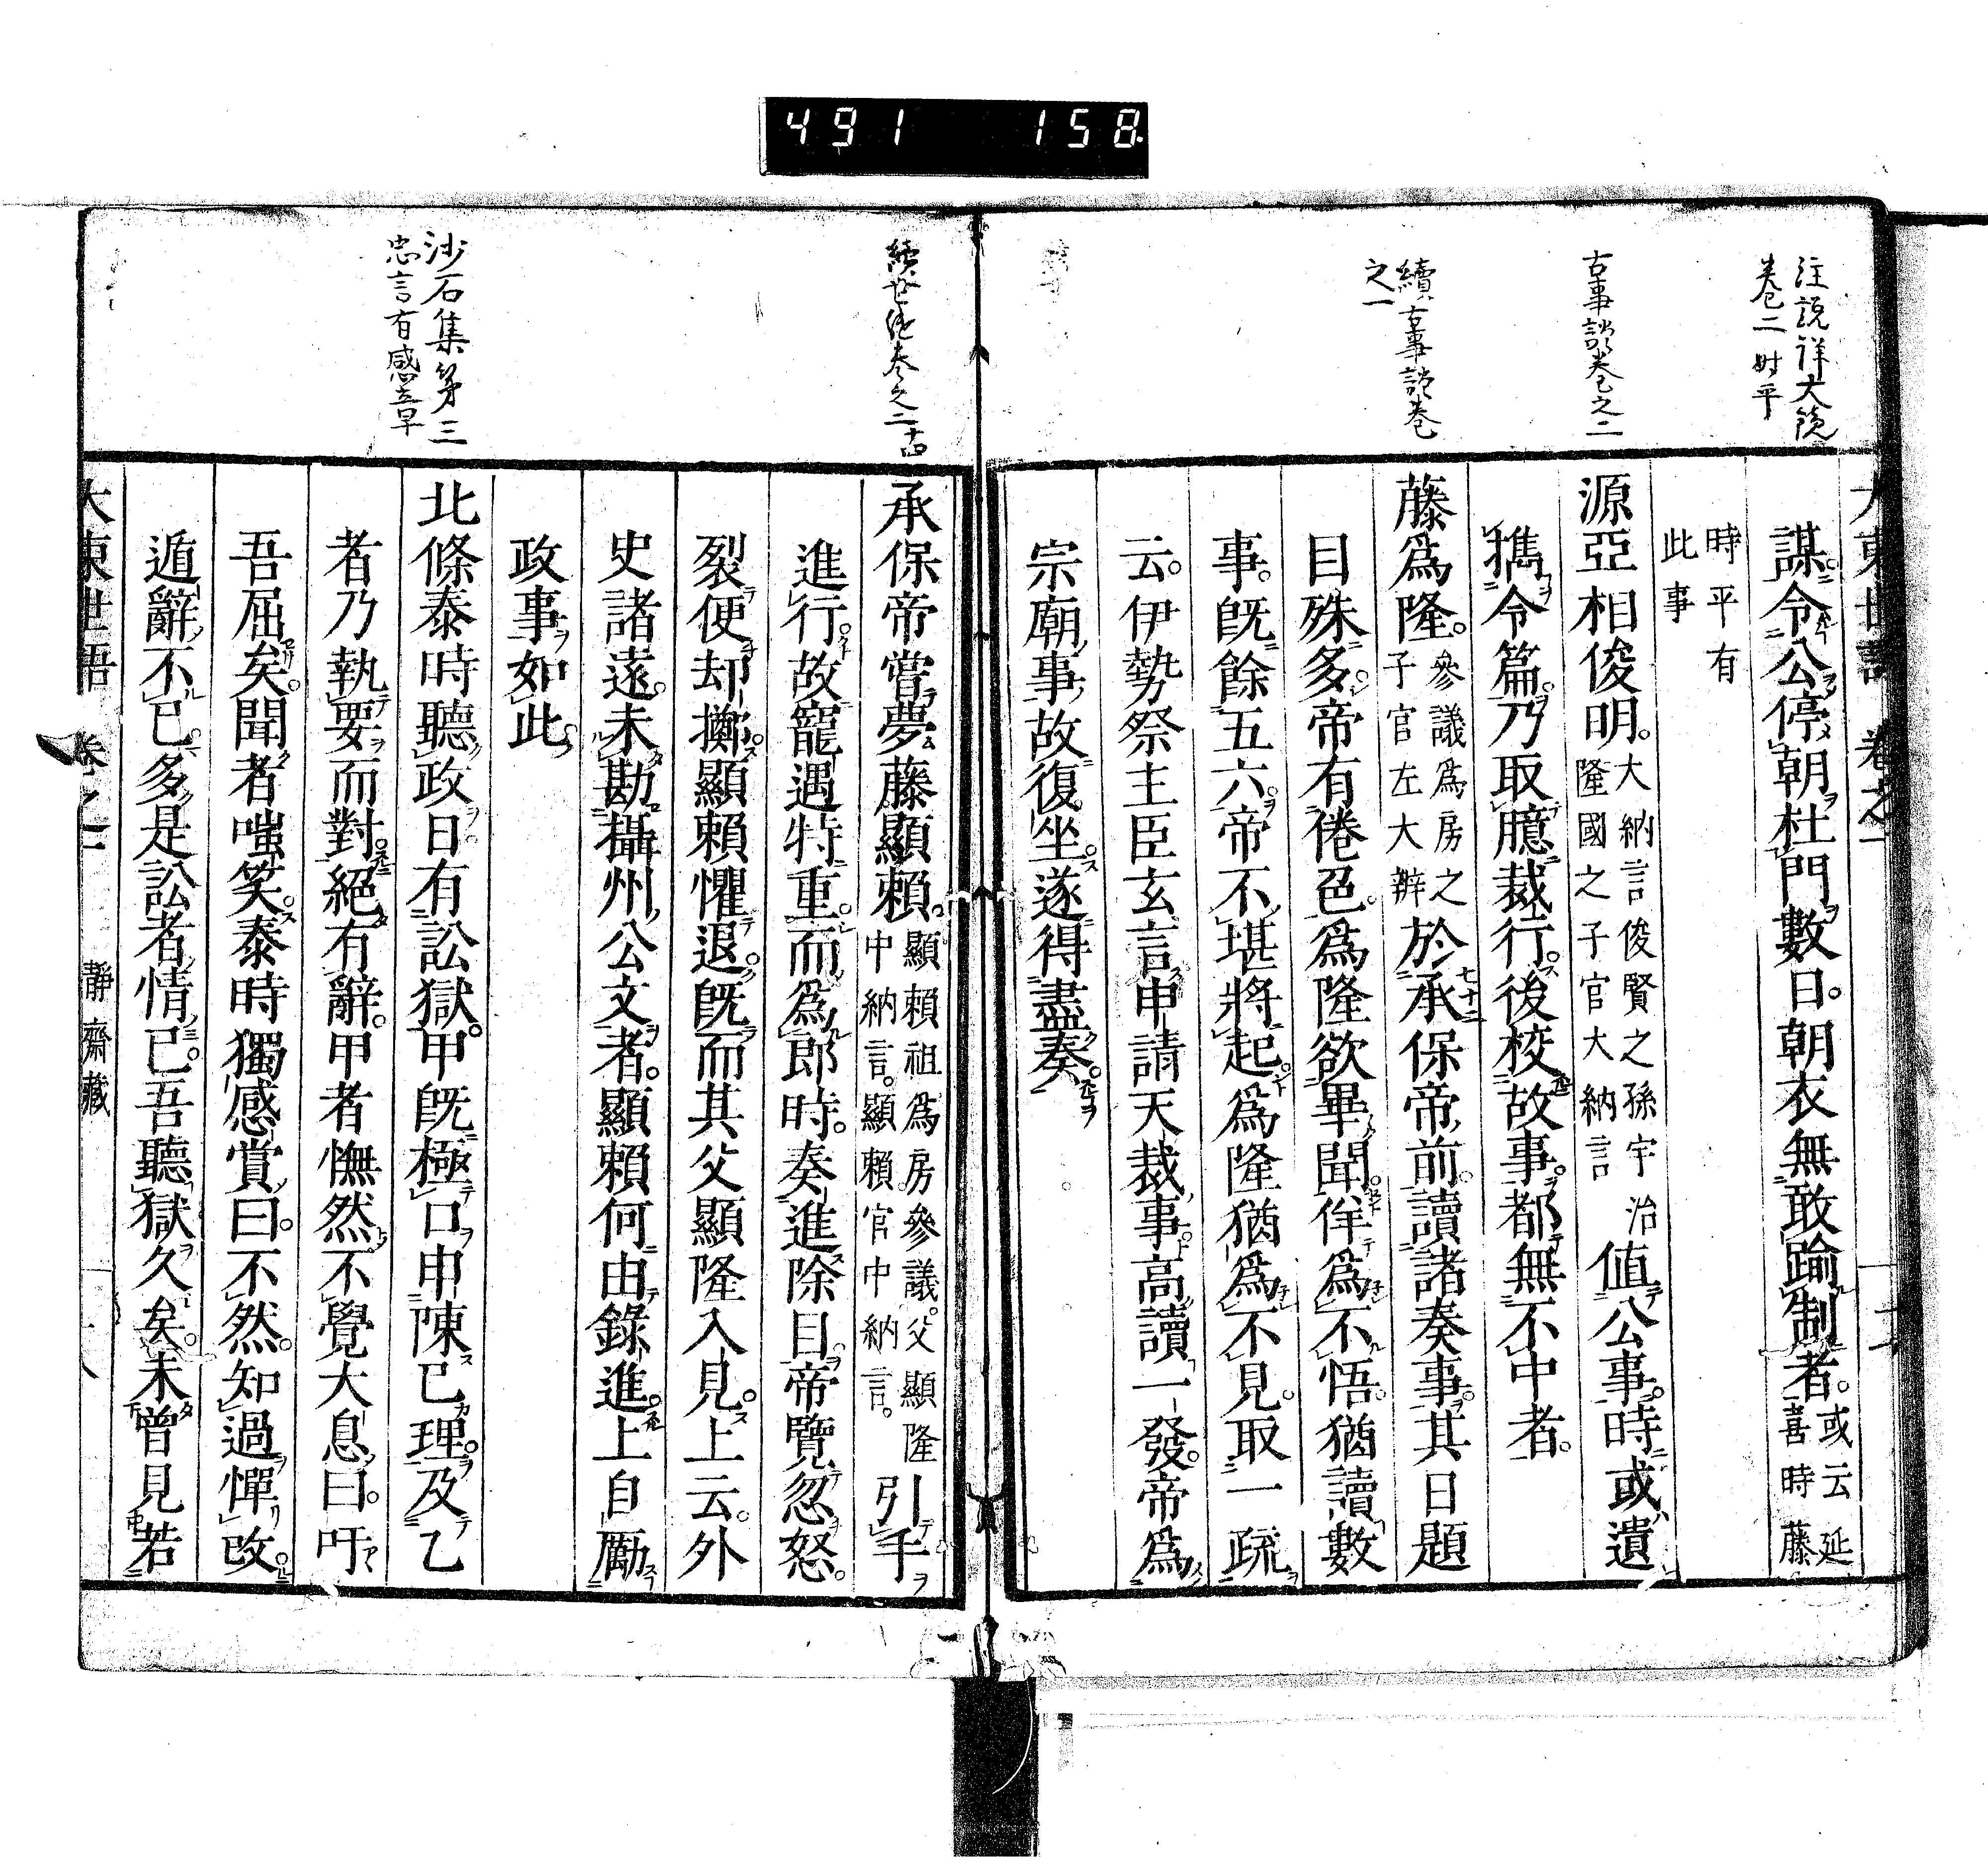 491 158
注説詳大鏡
巻二時平
古事談巻之二
續古事談巻
之一
大東世語 卷之一
謀令公停朝杜門數日。朝衣無敢踰制者。或云延喜時藤
時平有此事
源亞相俊明。大納言俊賢之孫宇治隆國之子官大納言值公事。時或遺
携令篇。乃取臆裁行。後校故事。都無不中者。
藤爲隆。參議爲房之子官左大辨於承保帝前。讀諸奏事。其日題
目殊多。帝有倦色。爲隆欲畢聞。佯爲不悟。猶讀數
事。旣餘五六。帝不堪將起。爲隆猶爲不見。取一疏
云。伊勢祭主臣玄言申請天裁事。高讀一發。帝爲
宗廟事。故復坐。遂得盡奏。
續世繼巻之二
承保帝嘗夢藤顯賴。顯賴祖爲房參議。父顯隆中納言。顯賴官中納言。引手
進行。故寵遇特重。而爲郎時。奏進除目。帝覽忽怒。
裂便却擲。顯賴懼退。旣而其父顯隆入見。上云。外
史諸遠。未勘攝州公文者。顯賴何由錄進。上自勵
政事。如此。
沙石集第三
忠言有感章
北條泰時聽政日。有訟獄。甲旣極口申陳已理。及乙
者乃執要而對。絕有辭。甲者憮然不覺大息曰。吁
吾屈矣。聞者嗤笑。泰時獨感賞曰。不然。知過憚改。
遁辭不已。多是訟者情已。吾聽獄久矣。未曾見若
大東世語 卷之一 靜齋藏